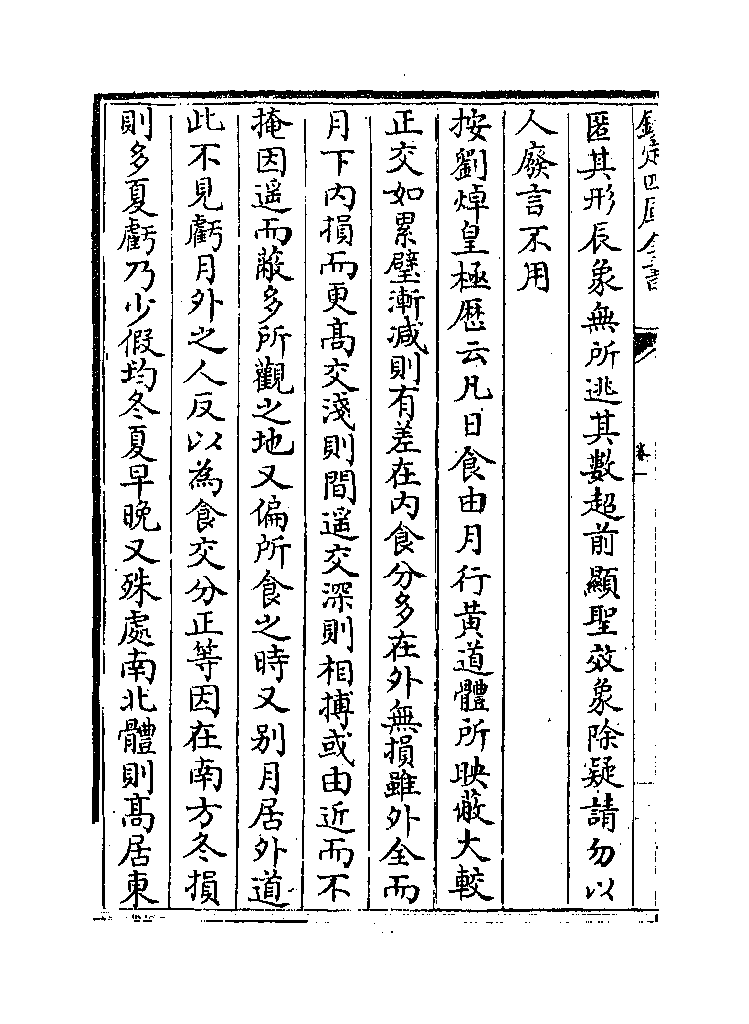 欽定四庫全書
卷一
匿其形辰象無所逃其數超前顯聖效象除疑請勿以
人廢言不用
按劉焯皇極厯云凡日食由月行黄道體所映蔽大較
正交如累璧漸減則有差在内食分多在外無損雖外全而
月下内損而更髙交淺則間遥交深則相搏或由近而不
掩因遥而蔽多所觀之地又偏所食之時又别月居外道
此不見虧月外之人反以為食交分正等因在南方冬損
則多夏虧乃少假均冬夏早晚又殊處南北體則髙居東